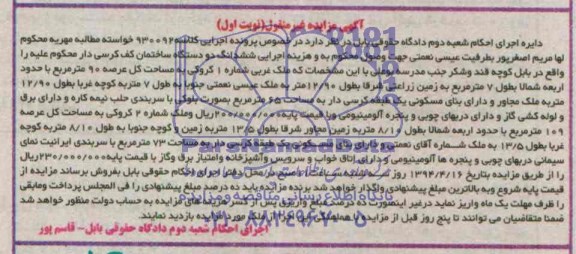 آگهی مزایده غیر منقول(نوبت اول)
دایره اجرای احکام شعبه دوم دادگاه حقوقی بابل در نظر دارد در خصوص پرونده اجرایی کلاسه ۹۳۰۰۹۲ خواسته مطالبه مهریه محکوم
لها مریم اصغرپور بطرفیت عیسی نعمتی جهت وصول محکوم به و هزینه اجرایی ششدانگ دو دستگاه ساختمان کف کرسی دار محکوم علیه را
واقع در بابل کوچه قند وشکر جنب مدرسه بوعلی با این مشخصات که ملک غربی شماره ۱ کروکی به مساحت کل عرصه ۹۰ مترمربع با حدود
اربعه شمالا بطول ۷ مترمربع به زمین زراعتی شرقا بطول ۱۲/۹۰ متر به ملک عیسی نعمتی جنوبا به طول ۷ متربه کوچه غربا بطول ۱۲/۹۰
متربه ملک مجاور و دارای بنای مسکونی یک طبقه کرسی دار به مساحت ۶۵ مترمربع بصورت بلوکی با سربندی حلب نیمه کاره و دارای برق
و لوله کشی گاز و دارای دربهای چوبی و پنجره آلومینیومی وبا قیمت پایه ۲۰۰/۰۰۰/۰۰۰ریال وملک شماره ۲ کروکی به مساحت کل عرصه
۱۰۹ مترمربع با حدود اربعه شمالا بطول ۸/۱۰ متربه زمین مجاور شرقا بطول ۱۳/۵ متربه زمین و کوچه جنوبا به طول ۸/۱۰ متربه کوچه
غربا بطول ۱۳/۵ به ملک شماره آقای نعمتی و دارای بنای مسکونی یک طبقه کرسی دار به مساحت ۷۳ مترمربع با سربندی ایرانیت نمای
سیمانی دربهای چوبی و پنجره ها آلومینیومی و دارای اتاق خواب و سرویس وآشپزخانه وامتیاز برق وگاز با قیمت پایه۲۳۰/۰۰۰/۰۰۰ریال
را از طریق مزایده بتاریخ ۱۳۹۴/۴/۱۶ روز سه شنبه در محل دفتر اجرای احکام حقوقی بابل بفروش برساند مزایده از
قیمت پایه شروع وبه بالاترین مبلغ پیشنهادی واگذار خواهد شد برنده مزایده باید ده درصد مبلغ پیشنهادی را فی المجلس پرداخت ومابقی
را ظرف مهلت یک ماه واریز نماید درغیر اینصورت ده درصد مبلغ واریزی پس از کسر هزینه های مزایده به حساب دولت منظور خواهد شد
ضمنا متقاضیان می توانند تا پنج روز قبل از مزایده با هماهنگی این اجرا از ملک مورد مزایده بازدید نمایند.
اجرای احکام شعبه دوم دادگاه حقوقی بابل- قاسم پور
پایگاه اطلاع رسانی مناقصه و مزایده
۰۲۱-۸۸۳۴۹۶۷۰-۵